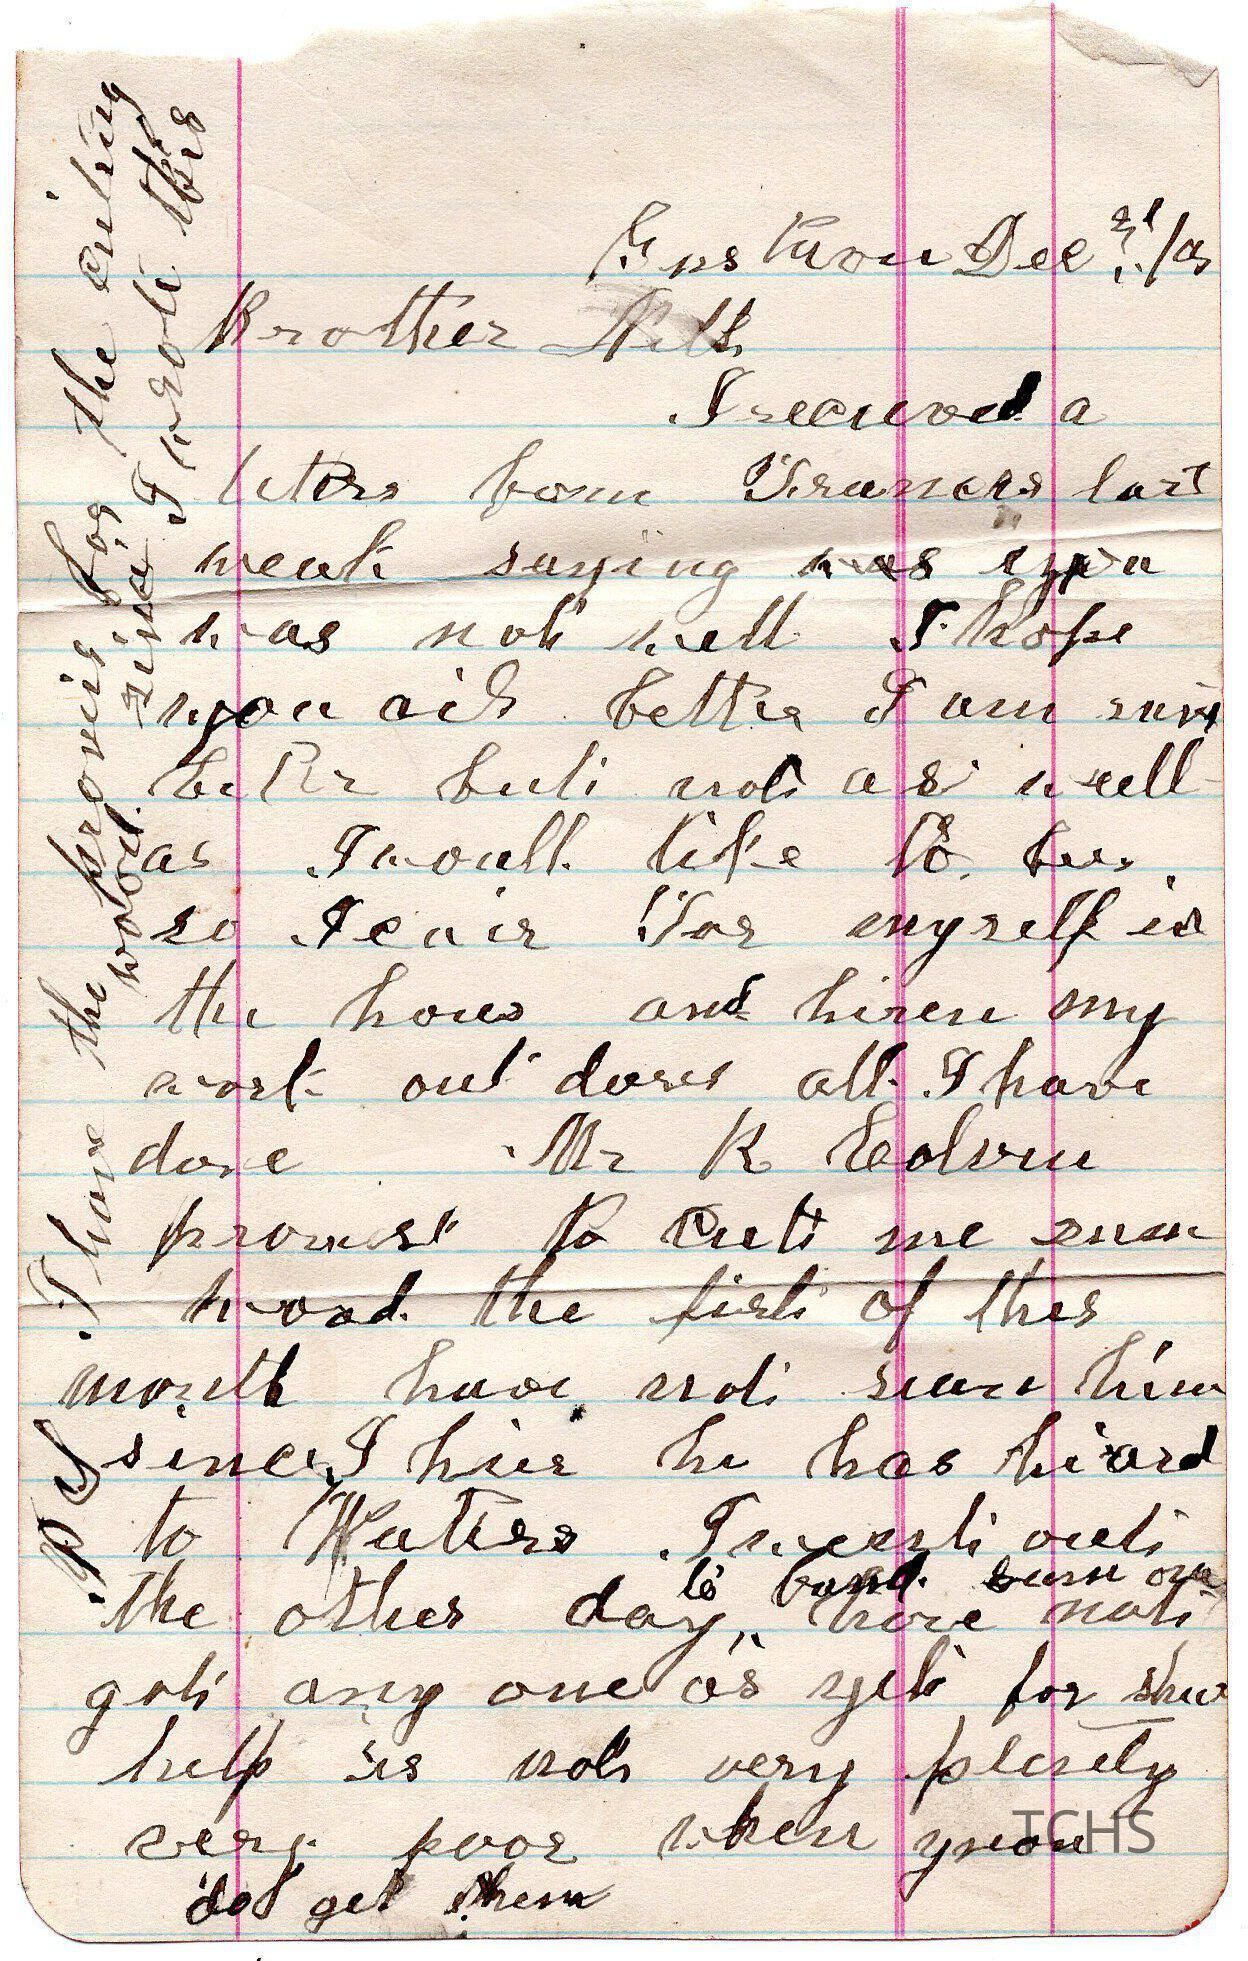 Dec
Brother
I recieved a
letters from last
weak saying was you
was not well I hope
you air better I am sum
better but not as well
as I would like to bee
so I cair for myself in
the hous and hiren my
work out dores all I have
done Mr R Colvin
promist to cut me sum
wood the first of thes
month have not sean him
since I hier he has hierd
to Waters I went out
the other day to band sum one
have not
got any one as yet for shur
help is not very plenty
very poor when you
do get them
P S I have the promis for the cuting
wood since I wrote this
TCHS